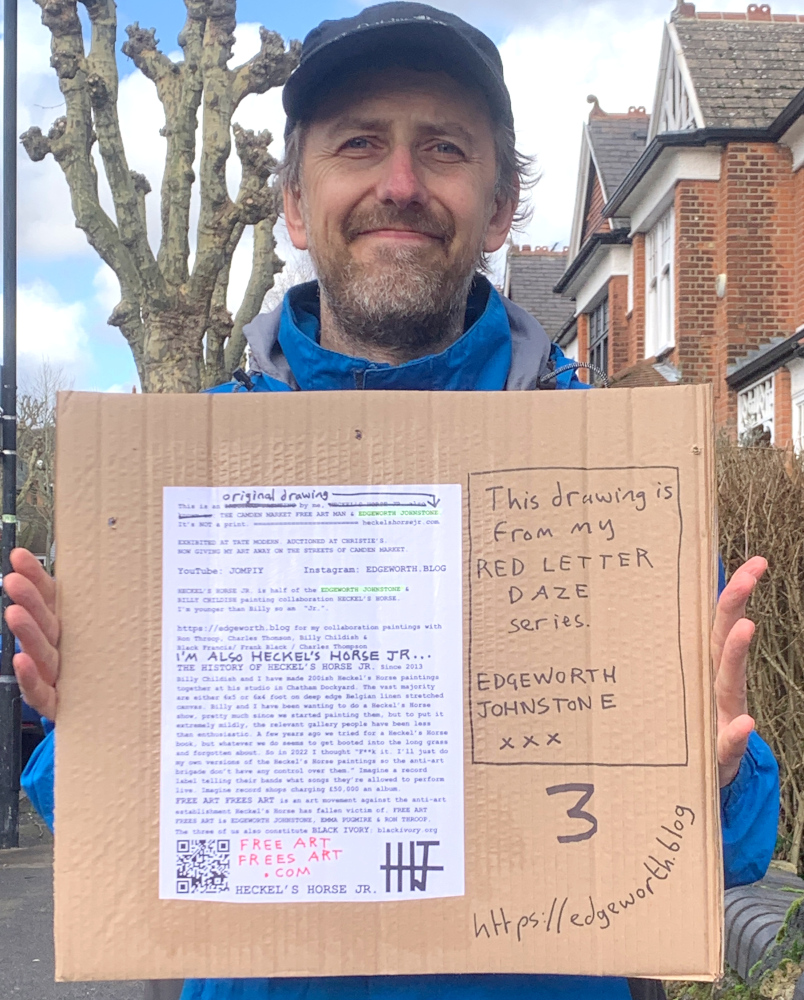 original drawing
This is an by me,
THE CAMDEN MARKET FREE ART MAN & EDGEWORTH JOHNSTONE.
It's NOT a print. heckelshorsejr.com
EXHIBITED AT TATE MODERN. AUCTIONED AT CHRISTIE'S.
NOW GIVING MY ART AWAY ON THE STREETS OF CAMDEN MARKET.
YouTube: JOMPIY Instagram: EDGEWORTH.BLOG
HECKEL'S HORSE JR. is half of the EDGEWORTH JOHNSTONE &
BILLY CHILDISH painting collaboration HECKEL'S HORSE.
I'm younger than Billy so am "Jr.".
https://edgeworth.blog for my collaboration paintings with
Ron Throop, Charles Thomson, Billy Childish &
Black Francis/ Frank Black / Charles Thompson
I'M ALSO HECKEL'S HORSE JR...
THE HISTORY OF HECKEL'S HORSE JR. Since 2013
Billy Childish and I have made 200ish Heckel's Horse paintings
together at his studio in Chatham Dockyard. The vast majority
are either 6x5 or 6x4 foot on deep edge Belgian linen stretched
canvas. Billy and I have been wanting to do a Heckel's Horse
show, pretty much since we started painting them, but to put it
extremely mildly, the relevant gallery people have been less
than enthusiastic. A few years ago we tried for a Heckel's Horse
book, but whatever we do seems to get booted into the long grass
and forgotten about. So in 2022 I thought "F**k it. I'll just do
my own versions of the Heckel's Horse paintings so the anti-art
brigade don't have any control over them." Imagine a record
label telling their bands what songs they're allowed to perform
live. Imagine record shops charging £50,000 an album.
FREE ART FREES ART is an art movement against the anti-art
establishment Heckel's Horse has fallen victim of. FREE ART
FREES ART is EDGEWORTH JOHNSTONE, EMMA PUGMIRE & RON THROOP.
The three of us also constitute BLACK IVORY: blackivory.org
FREE ART
FREES ART
.COM
HECKEL'S HORSE JR.
This drawing is
from my
RED LETTER
DAZE
series.
EDGEWORTH
JOHNSTONE
xxx
3
https://edgeworth.blog